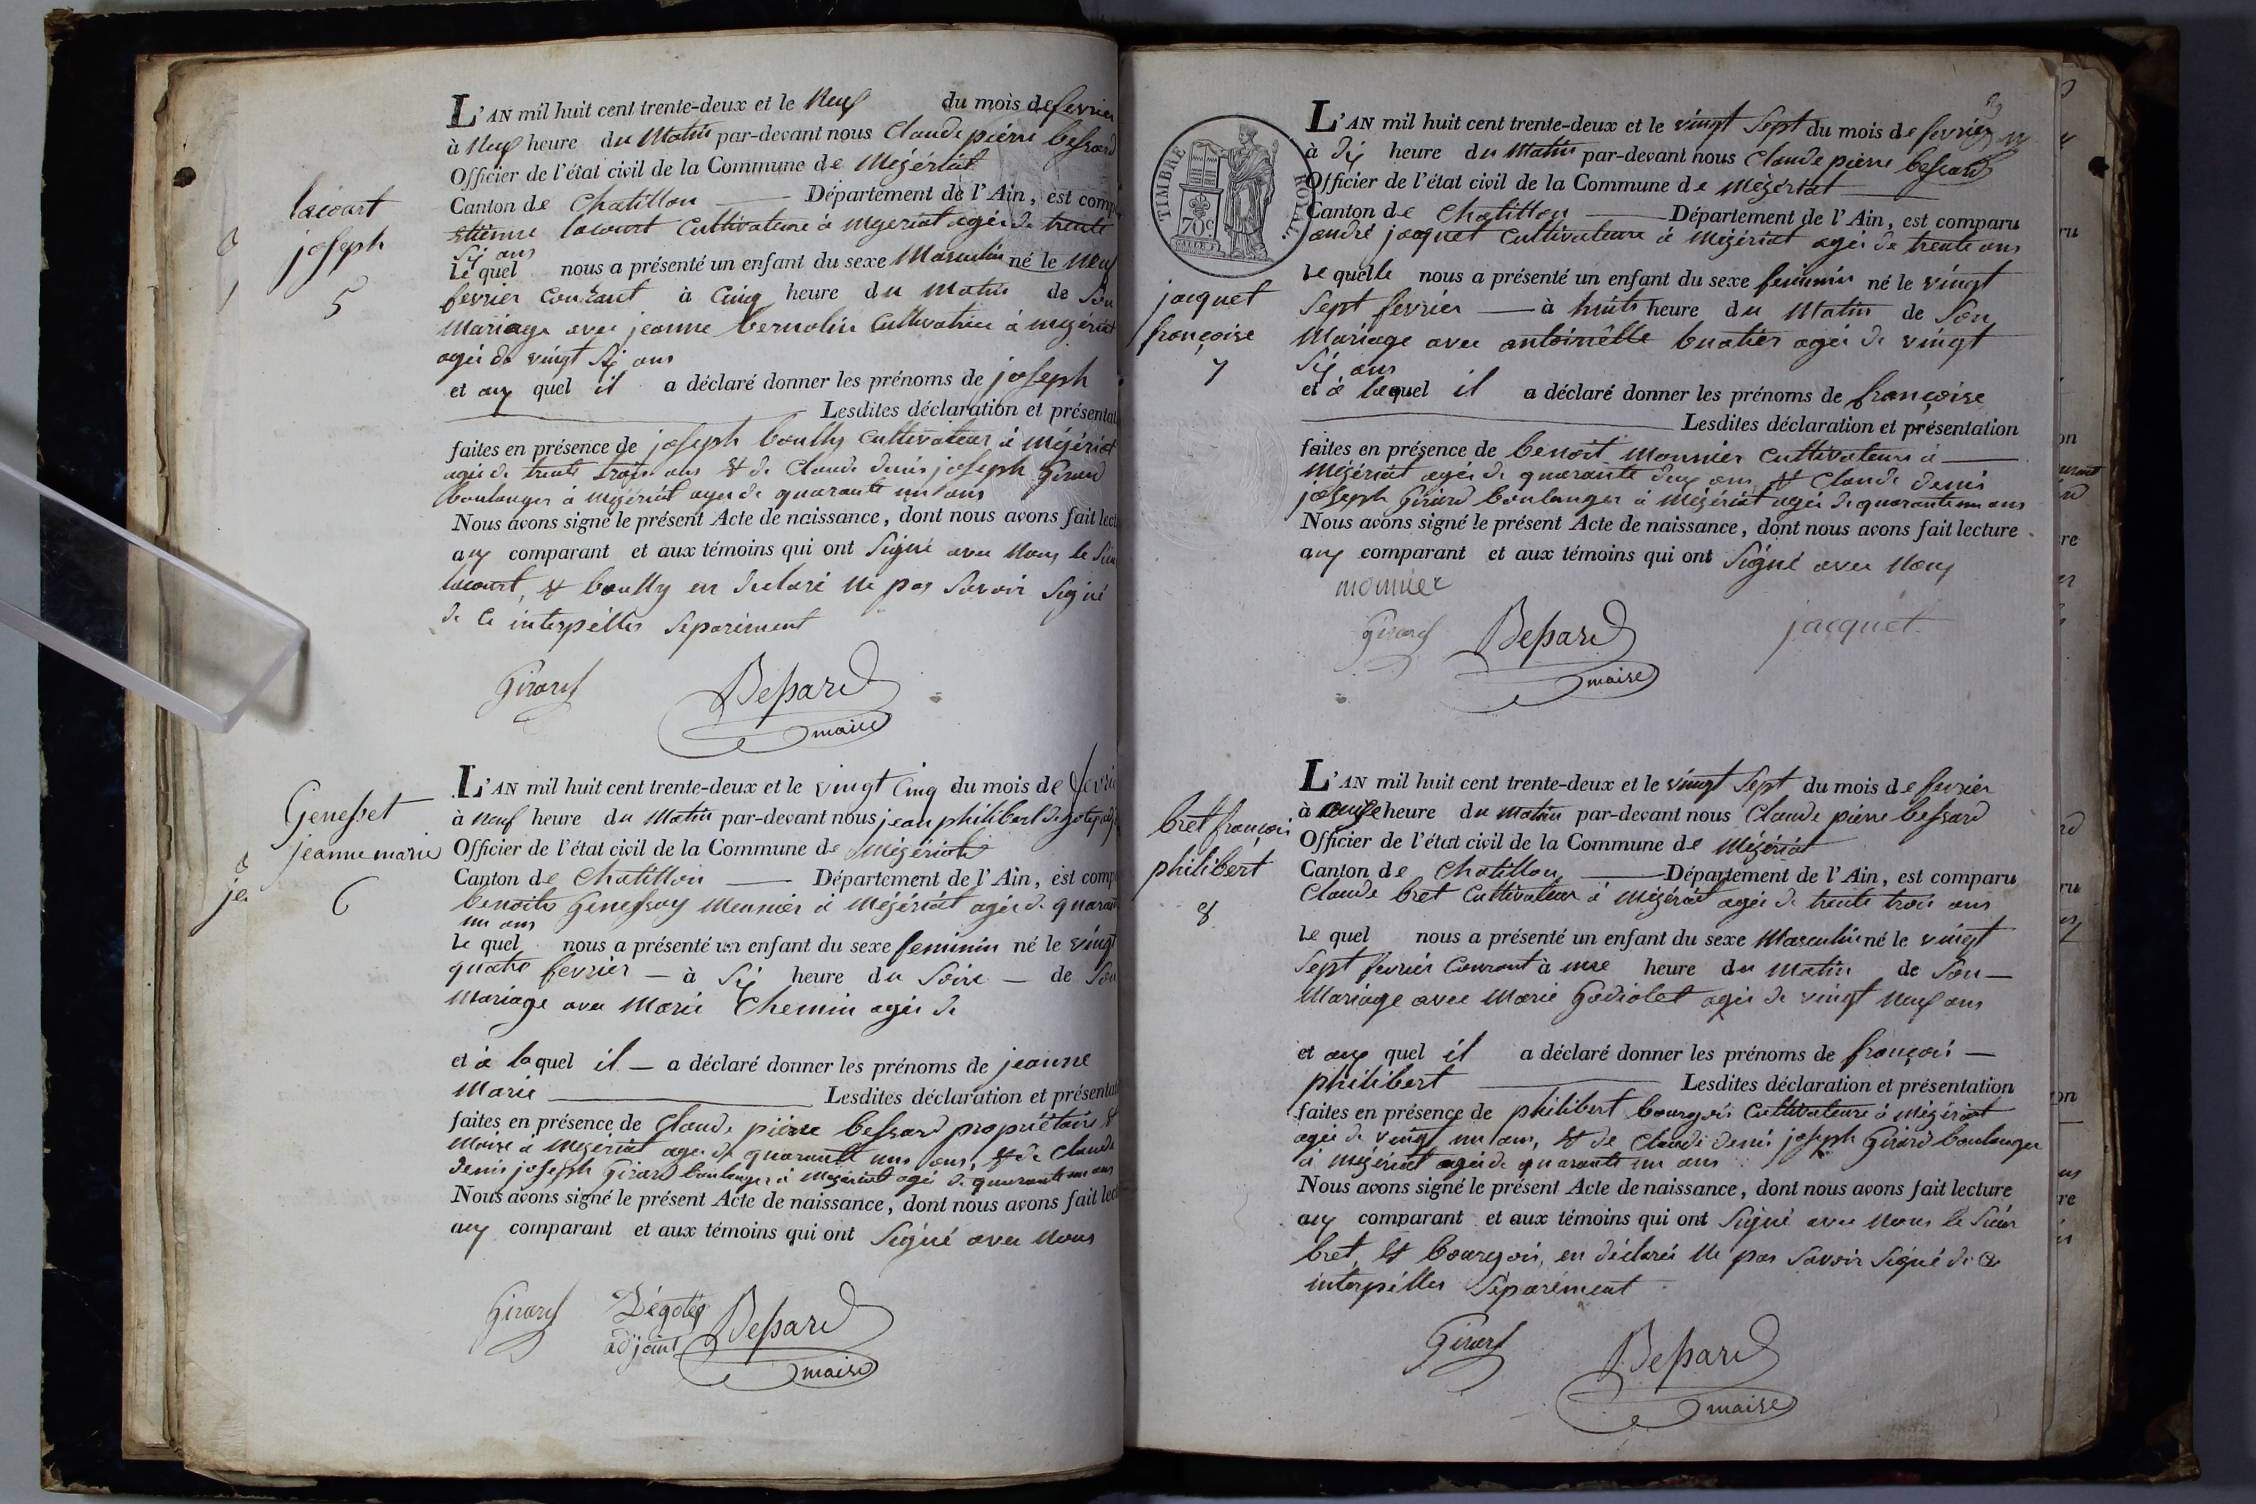 lacourt
joseph
5
L'AN mil huit cent trente-deux et le Neuf du mois de fevrier
à Neuf heure du Matin par-devant nous Claude pierre bessard
Officier de l'état civil de la Commune de Mézériat
Canton de Chatillon — Département de l'Ain, est comp
etienne lacourt Cultivateur à mezeriat agé de trente
six ans
Le quel nous a présenté un enfant du sexe Masculin né le Neuf
fevrier Courant à Cinq heure du matin de Son
Mariage avec jeanne bernolin Cultivatrice à mézériat
agée de vingt six ans
et au quel il a déclaré donner les prénoms de joseph
Lesdites déclaration et présentat
faites en présence de joseph boully cultivateur à mézériat
agé de trente trois ans et de Claude denis joseph Girard
boulanger à mézériat agé de quarante un ans
Nous avons signé le présent Acte de naissance, dont nous avons fait lect
aux comparant et aux témoins qui ont Signé avec Nous le Sieur
lacourt, et boully en declaré ne pas Savoir Signé
de ce interpellés Separément
Girard
Bessard
maire
Genesset
jeanne marie
6
L'AN mil huit cent trente-deux et le vingt Cinq du mois de fevrie
à Neuf heure du Matin par-devant nous jean philibert
Officier de l'état civil de la Commune de Mézériat
Canton de Chatillon — Département de l'Ain, est comp
benoit Meunier à Mézériat agé de quarante
un ans
Le quel nous a présenté un enfant du sexe feminin né le vingt
quatre fevrier — à Six heure du Soire — de Son
Mariage avec Marie Chemin agée de
et à laquel il — a déclaré donner les prénoms de jeanne
Marie — Lesdites déclaration et présentat
faites en présence de Claude pierre bessard propriétaire et
Maire à Mézériat agé de quarante un ans, et de Claude
denis joseph Girard boulanger à Mézériat agé de quarante un ans
Nous avons signé le présent Acte de naissance, dont nous avons fait lect
aux comparant et aux témoins qui ont Signé avec Nous
Girard
adjoint
Bessard
maire
TIMBRE ROYAL.
70c
jacquet
françoise
7
L'AN mil huit cent trente-deux et le vingt Sept du mois de fevrier
à dix heure du Matin par-devant nous Claude pierre bessard
Officier de l'état civil de la Commune de Mézériat
Canton de Chatillon — Département de l'Ain, est comparu
andré jacquet Cultivateur à Mézériat agé de trente ans
Le quelle nous a présenté un enfant du sexe feminin né le vingt
Sept fevrier — à huits heure du Matin de Son
Mariage avec antoinette buatier agée de vingt
Six ans
et à laquel il a déclaré donner les prénoms de françoise
Lesdites déclaration et présentation
faites en présence de benoit Monnier Cultivateur à —
Mézériat agé de quarante deux ans et Claude denis
joseph Girard boulanger à Mézériat agé de quarante un ans
Nous avons signé le présent Acte de naissance, dont nous avons fait lecture
aux comparant et aux témoins qui ont Signé avec Nous
monnier
Girard
Bessard
maire
jacquet
bret françois
philibert
8
L'AN mil huit cent trente-deux et le vingt Sept du mois de fevrier
à onze heure du matin par-devant nous Claude pierre bessard
Officier de l'état civil de la Commune de Mézériat
Canton de Chatillon — Département de l'Ain, est comparu
Claude bret Cultivateur à Mézériat agé de trente trois ans
Le quel nous a présenté un enfant du sexe Masculin né le vingt
Sept fevrier Courant à une heure du matin de Son —
Mariage avec Marie Godiolet agée de vingt Neuf ans
et au quel il a déclaré donner les prénoms de françois —
philibert — Lesdites déclaration et présentation
faites en présence de philibert bourgois Cultivateur à Mézériat
agé de vingt un ans, et de Claude denis joseph Girard boulanger
à Mézériat agé de quarante un ans
Nous avons signé le présent Acte de naissance, dont nous avons fait lecture
aux comparant et aux témoins qui ont Signé avec Nous le Sieur
bret, et bourgois, en déclarés Ne pas Savoir Signé de ce
interpellés Séparément
Girard
Bessard
maire